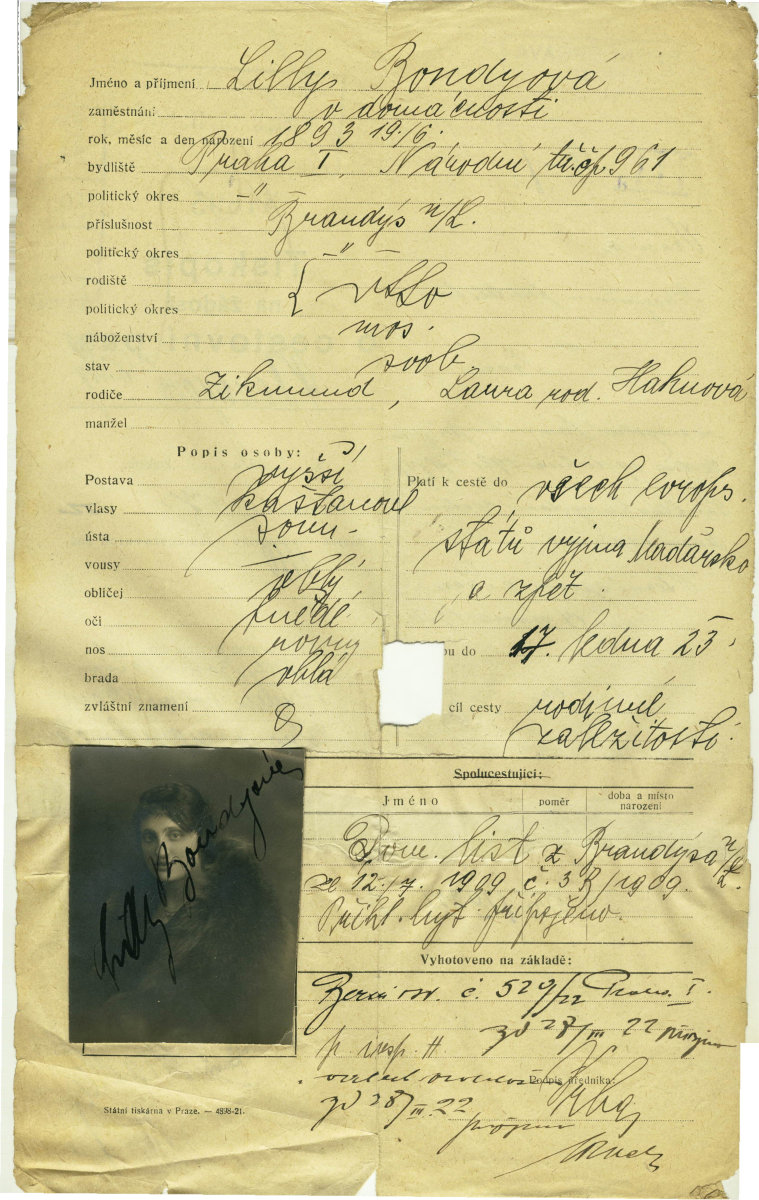 Jméno a příjmení Lilly Bondyová
zaměstnání v domácnosti
rok, měsíc a den narození 1893 19./6.
bydliště Praha I, Národní tř. čp. 961
politický okres -"-
příslušnost Brandýs n/L.
politický okres -"-
rodiště
politický okres
náboženství mos.
stav svob.
rodiče Zikmund, Laura rod. Hahnová
manžel
Popis osoby:
Postava vyšší
vlasy kaštanové
ústa soum.
vousy —
obličej oblý
oči hnědé
nos rovný
brada oblá
zvláštní znamení
Platí k cestě do všech evrops.
států vyjma Maďarsko
a zpět.
do 17. ledna 25.
cíl cesty rodinné
záležitosti.
Lilly Bondyová
Spolucestující:
Jméno poměr doba a místo narození
Dom. list z Brandýsa n/L.
ze 12./7. 1909 č. 3 B/1909.
Přihl. připojeno.
Vyhotoveno na základě:
č. 529/22 I.
28/III 22
Podpis úředníka:
28/III.22
Státní tiskárna v Praze. — 4898-21.